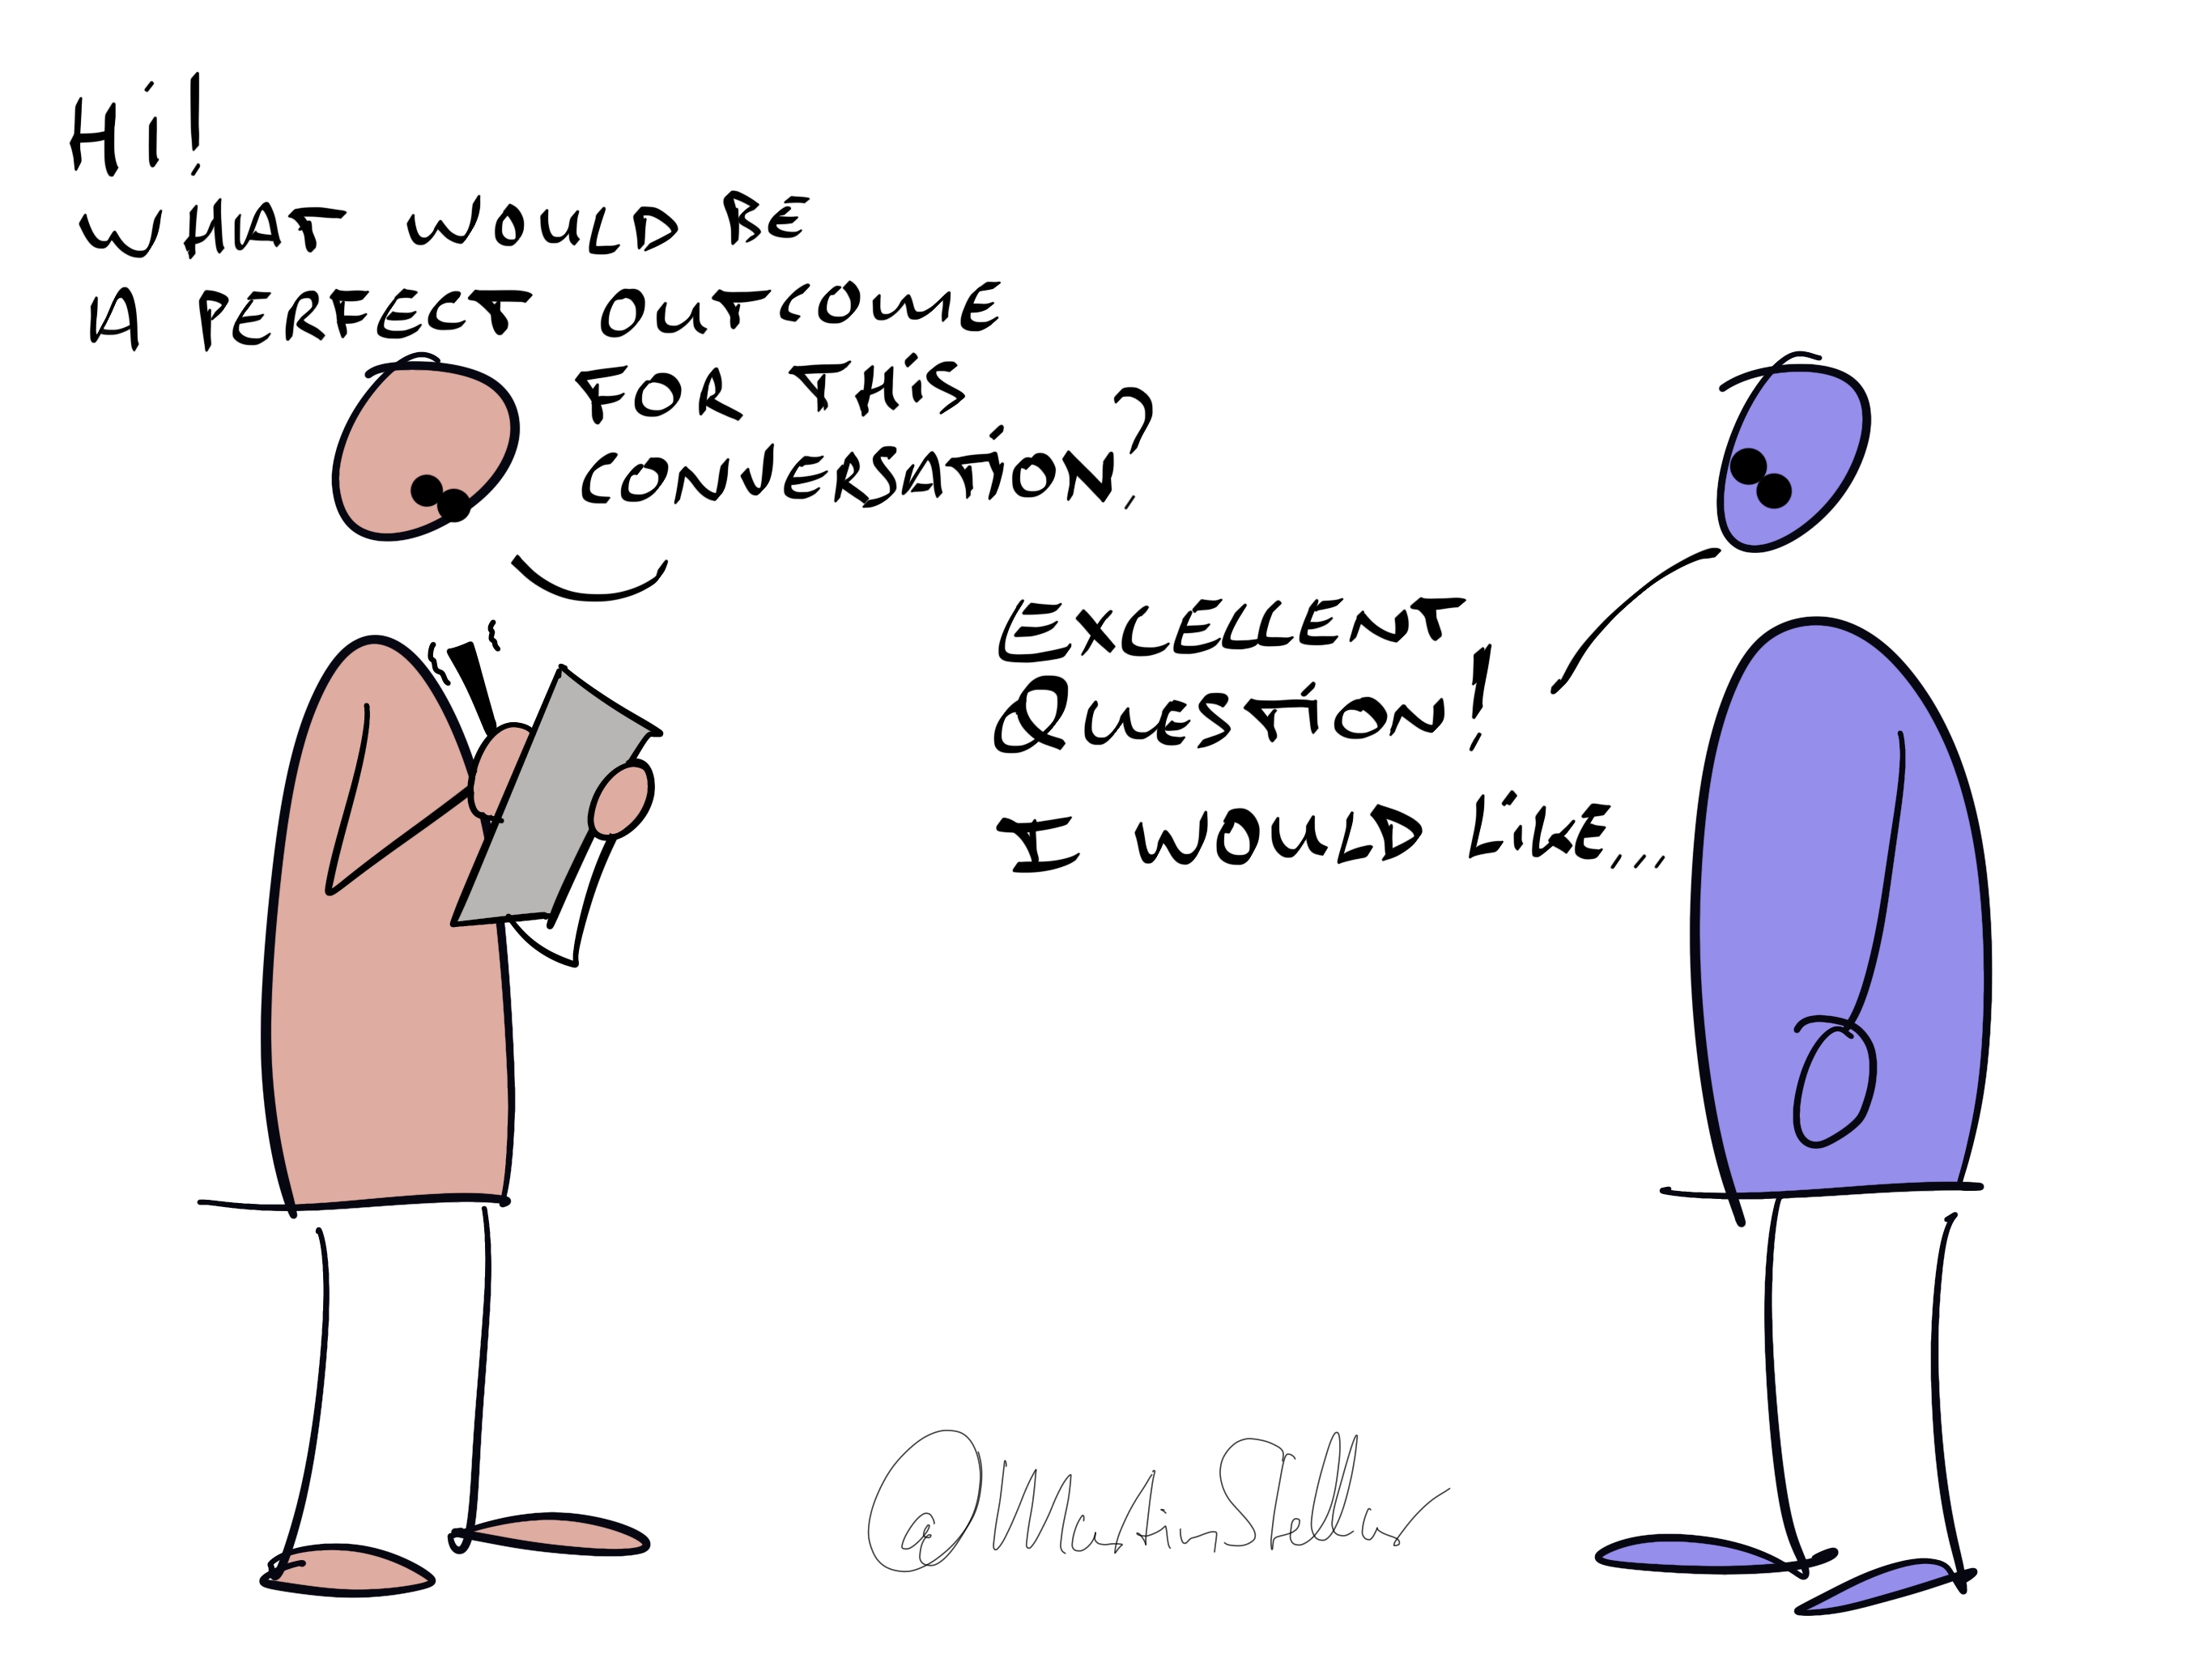 Hi!
WHAT WOULD BE
A PERFECT OUTCOME
FOR THIS
CONVERSATION?
EXCELLENT
QUESTION!
I WOULD LIKE...
@MartinStellar